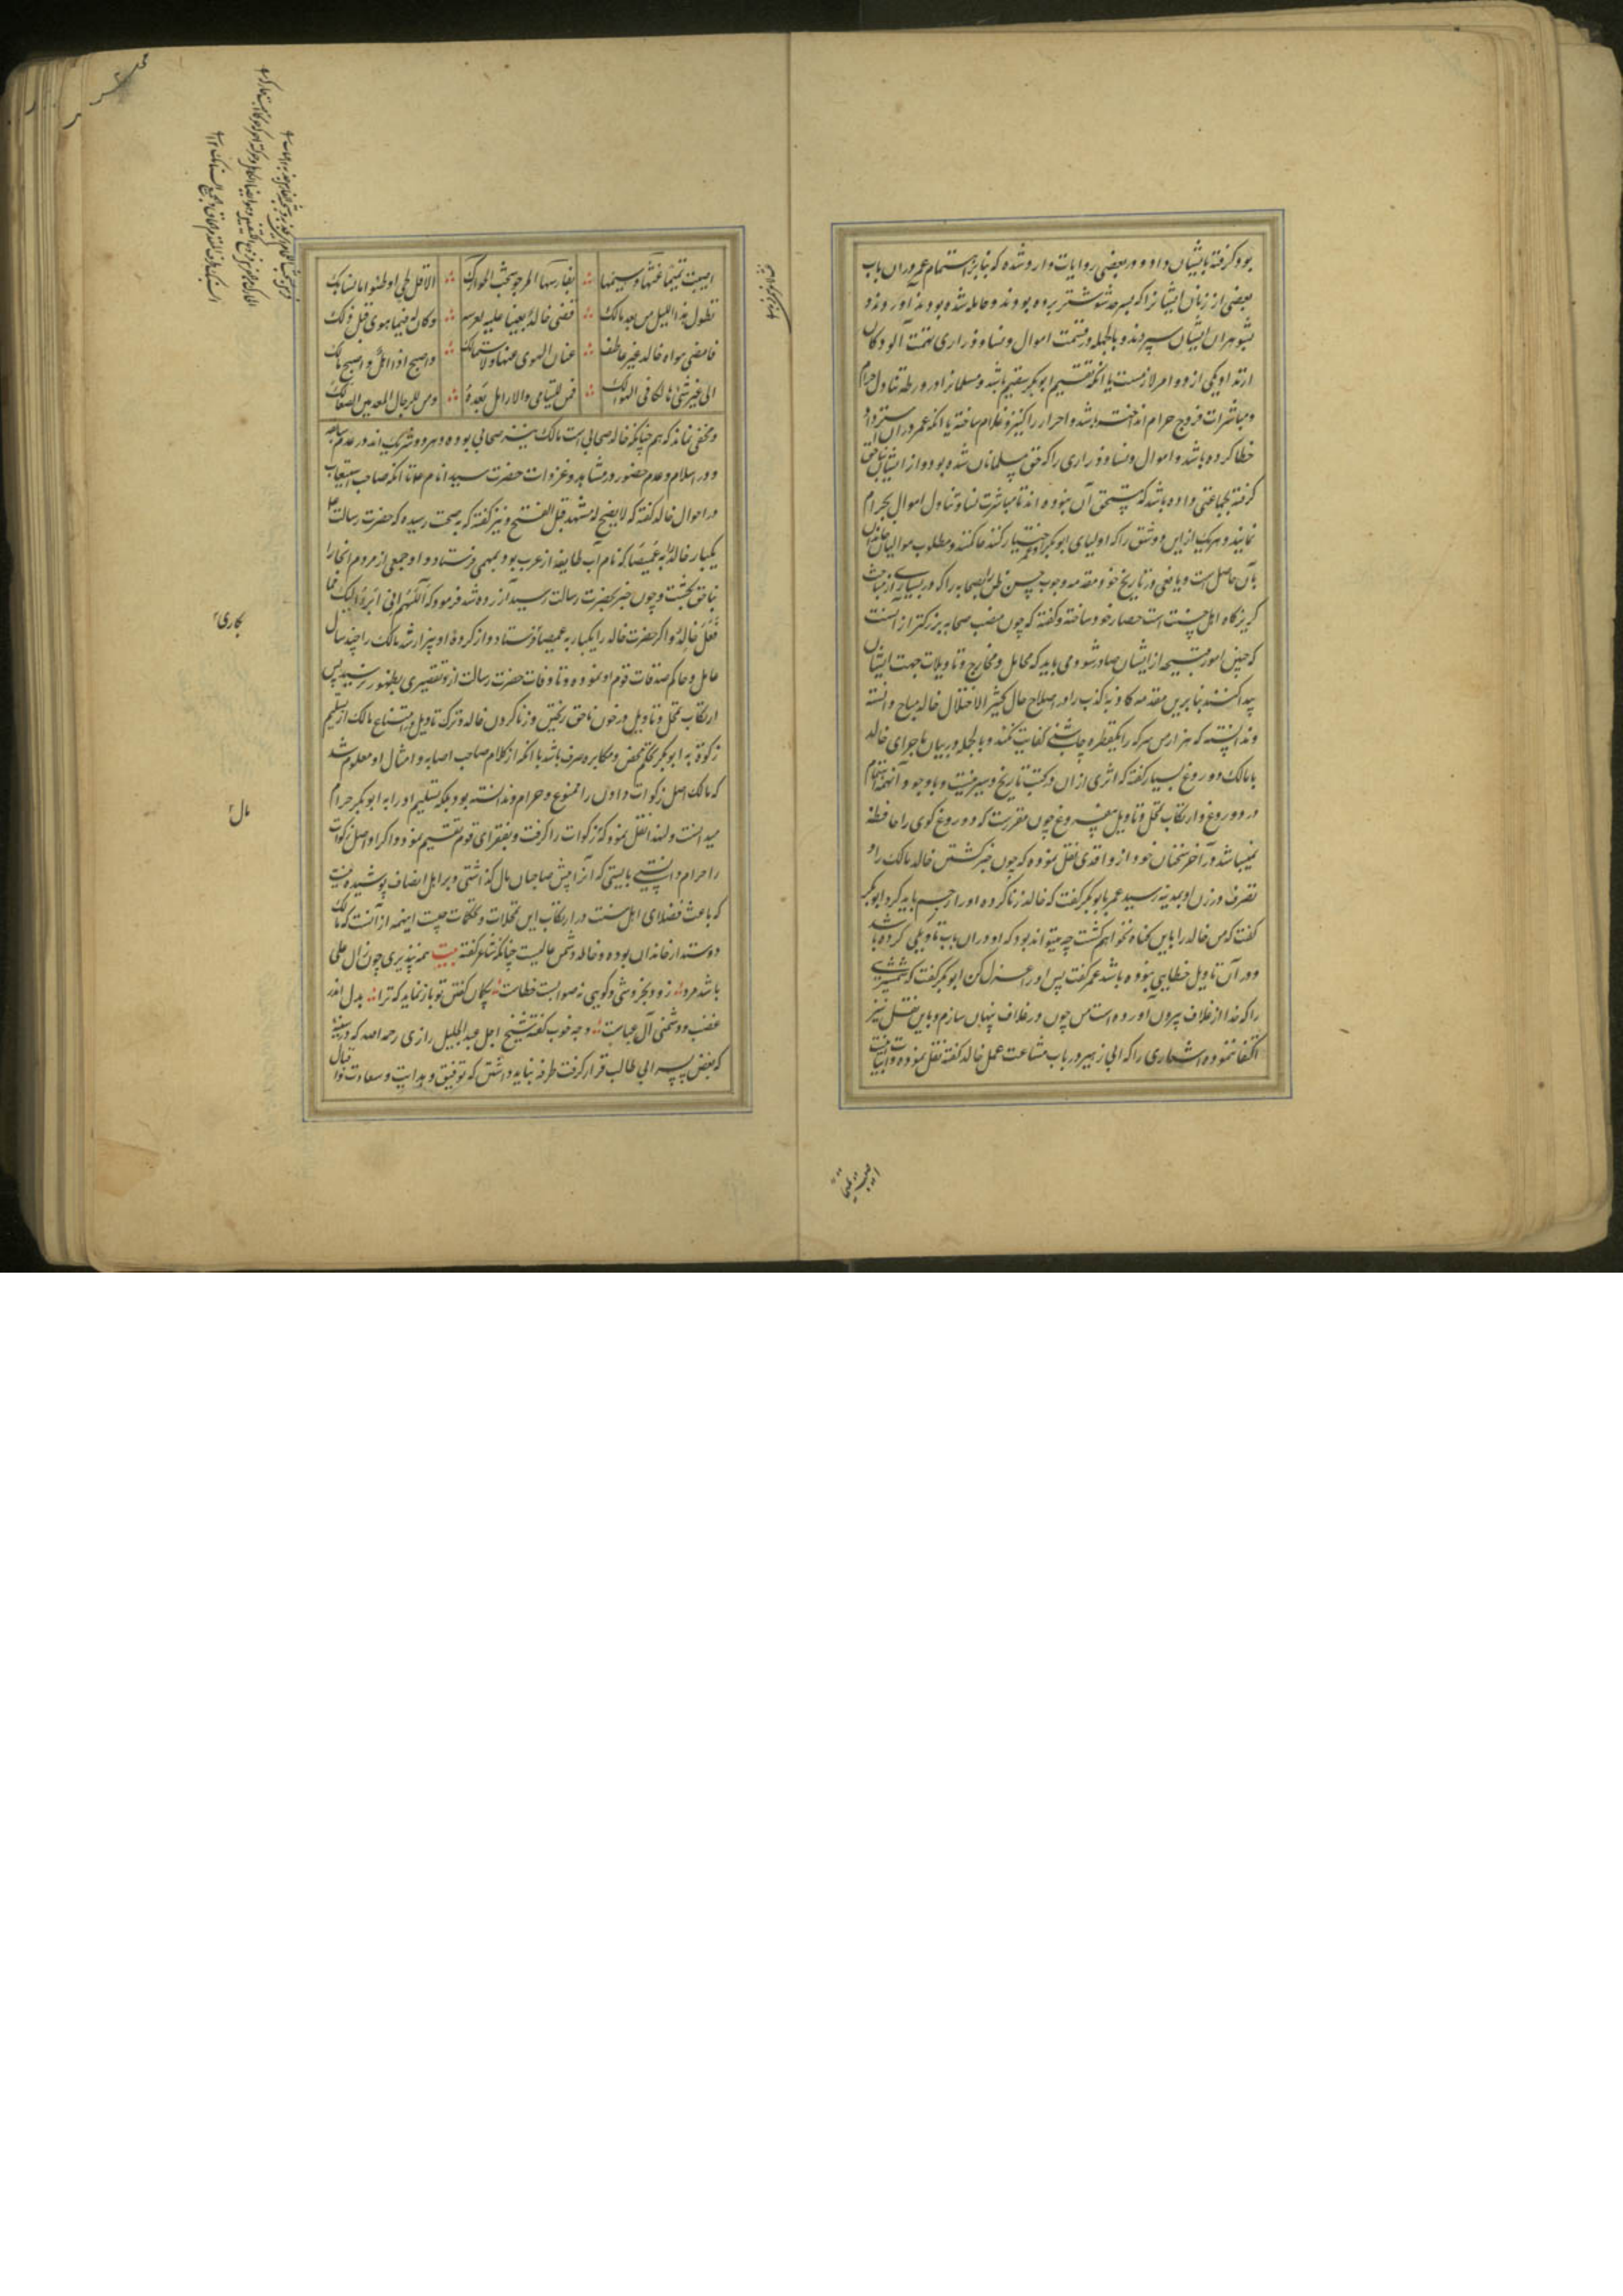 بود گرفته بایشان داد و در بعضی روایات وارد شده که بنابر اهتمام عمر در آن باب
بعضی از زنان ایشانرا که بسرحد شوشتر برده بودند و حامله شده بودند آوردند و
بشوهران ایشان سپردند و بالجمله در قسمت اموال و نسا و ذراری تهمت آلودگان
ارتداد یکی از دو امر لازمست یا آنکه تقسیم ابوبکر سقیم باشد و مسلمانرا در ورطه تناول حرام
و مباشرات فروج حرام انداخته باشد و احرار را کنیز و غلام ساخته یا آنکه عمر در آن استرداد
خطا کرده باشد و اموال و نسا و ذراری را که حق مسلمانان شده بود از ایشان بناحق
گرفته بجماعتی داده باشد که مستحق آن نبوده‌اند تا مباشرت نسا و تناول اموال بحرام
نمایند و هر یک ازین دو شق را که اولیای ابوبکر و عمر اختیار کنند حاکمند و مطلوب موالیان خاندان
بآن حاصل است و یافعی در تاریخ خود مقدمه وجوب حسن ظن را بصحابه را که در بسیاری از مباحث
گریزگاه اهل سنت است حصار خود ساخته و گفته که چون منصب صحابه بزرگتر از آنست
که چنین امور قبیحه از ایشان صادر شود می باید که محامل و مخارج و تاویلات جهت ایشان
پیدا کنند بنابرین مقدمه کاذبه کذب را در اصلاح حال کثیر الاختلال خالد مباح دانسته
و ندانسته که هزار من سرکه را یکقطره چاشنی کفایت نکند و بالجمله در بیان ماجرای خالد
با مالک دروغ بسیار گفته که اثری از آن در کتب تاریخ و سیر نیست و با وجود آنهمه اهتمام
در دروغ و ارتکاب تمحل و تاویل بیفروغ چون مقررست که دروغ گوی را حافظه
نمیباشد در آخر سخنان خود از واقدی نقل نموده که چون خبر کشتن خالد مالک را و
تصرف در زن او بمدینه رسید عمر بابوبکر گفت که خالد زنا کرده او را رجم باید کرد ابوبکر
گفت که من خالد را باین گناه نخواهم کشت چه میتواند بود که او در آن باب تاویلی کرده باشد
و در آن تاویل خطایی نموده باشد عمر گفت پس او را عزل کن ابوبکر گفت که شمشیری
را که خدا از غلاف بیرون آورده است من چون در غلاف پنهان سازم و باین نقل نیز
اکتفا ننموده اشعاری را که ابی زهیر در باب شناعت عمل خالد گفته نقل نموده و ابیات اینست
الا قل لحی اوطئوا بالسنابک
تطاول هذا اللیل من بعد مالک
قضی خالد بغیا علیه لعرسه
وکان له فیما هوی قبل ذلک
فامضی هواه خالد غیر عاطف
عنان الهوی عنها ولا متمالک
واصبح ذا اهل واصبح مالک
الی غیر شیء هالکا فی الهوالک
فمن للیتامی والارامل بعده
ومن للرجال المعدمین الصعالک
و مخفی نماند که هم چنانکه خالد صحابی است مالک نیز صحابی بوده و هر دو شریک‌اند در عدم سابقه
در اسلام و عدم حضور در مشاهد و غزوات حضرت سید انام تا آنکه صاحب استیعاب
در احوال خالد گفته که لا یصح له مشهد قبل الفتح و نیز گفته که بصحت رسیده که حضرت رسالت
یکبار خالد را به غمیصا که نام آب طایفه از عرب بود بمهمی فرستاد و او جمعی از مردم آنجا را
بناحق بکشت و چون خبر بحضرت رسالت رسید آزرده شد فرمود که اللهم انی ابرؤ الیک مما
فعل خالد و اگر حضرت خالد را یکبار به غمیصا فرستاد و از کرده او بیزار شد مالک را چند سال
عامل و حاکم صدقات قوم او نموده و تا وفات حضرت رسالت ازو تقصیری بظهور نرسید پس
ارتکاب تمحل و تاویل در خون ناحق ریختن و زنا کردن خالد و ترک تاویل در امتناع مالک از تسلیم
زکوة به ابوبکر تحکم محض و مکابره صرف باشد با آنکه از کلام صاحب اصابه و امثال او معلوم شد
که مالک اصل زکوات دادن را ممنوع و حرام ندانسته بود بلکه تسلیم او را به ابوبکر حرام
میدانست و لهذا نقل نموده که زکوات را گرفت و بفقرای قوم تقسیم نمود و اگر او اصل زکوات
را حرام دانستی بایستی که آنرا پیش صاحبان مال گذاشتی و بر اهل انصاف پوشیده نیست
که باعث فضلای اهل سنت در ارتکاب این تمحلات و تحکمات چیست اینهمه از آنست که مالک
دوستدار خاندان بوده و خالد دشمن عالیست چنانکه شاعر گفته بیت همه بپذیری چون ز آل علی
باشد مرد زود بخروشی و گویی نه صوابست خطاست بیگمان گفتن تو باز نماید که ترا بدل اندر
غضب و دشمنی آل عباست و چه خوب گفته شیخ اجل عبدالجلیل رازی رحمه الله که در سینه
که بغض پسر ابی طالب قرار گرفت طرفه نباید داشتن که توفیق و هدایت و سعادت و اقبال
بکاری
مال